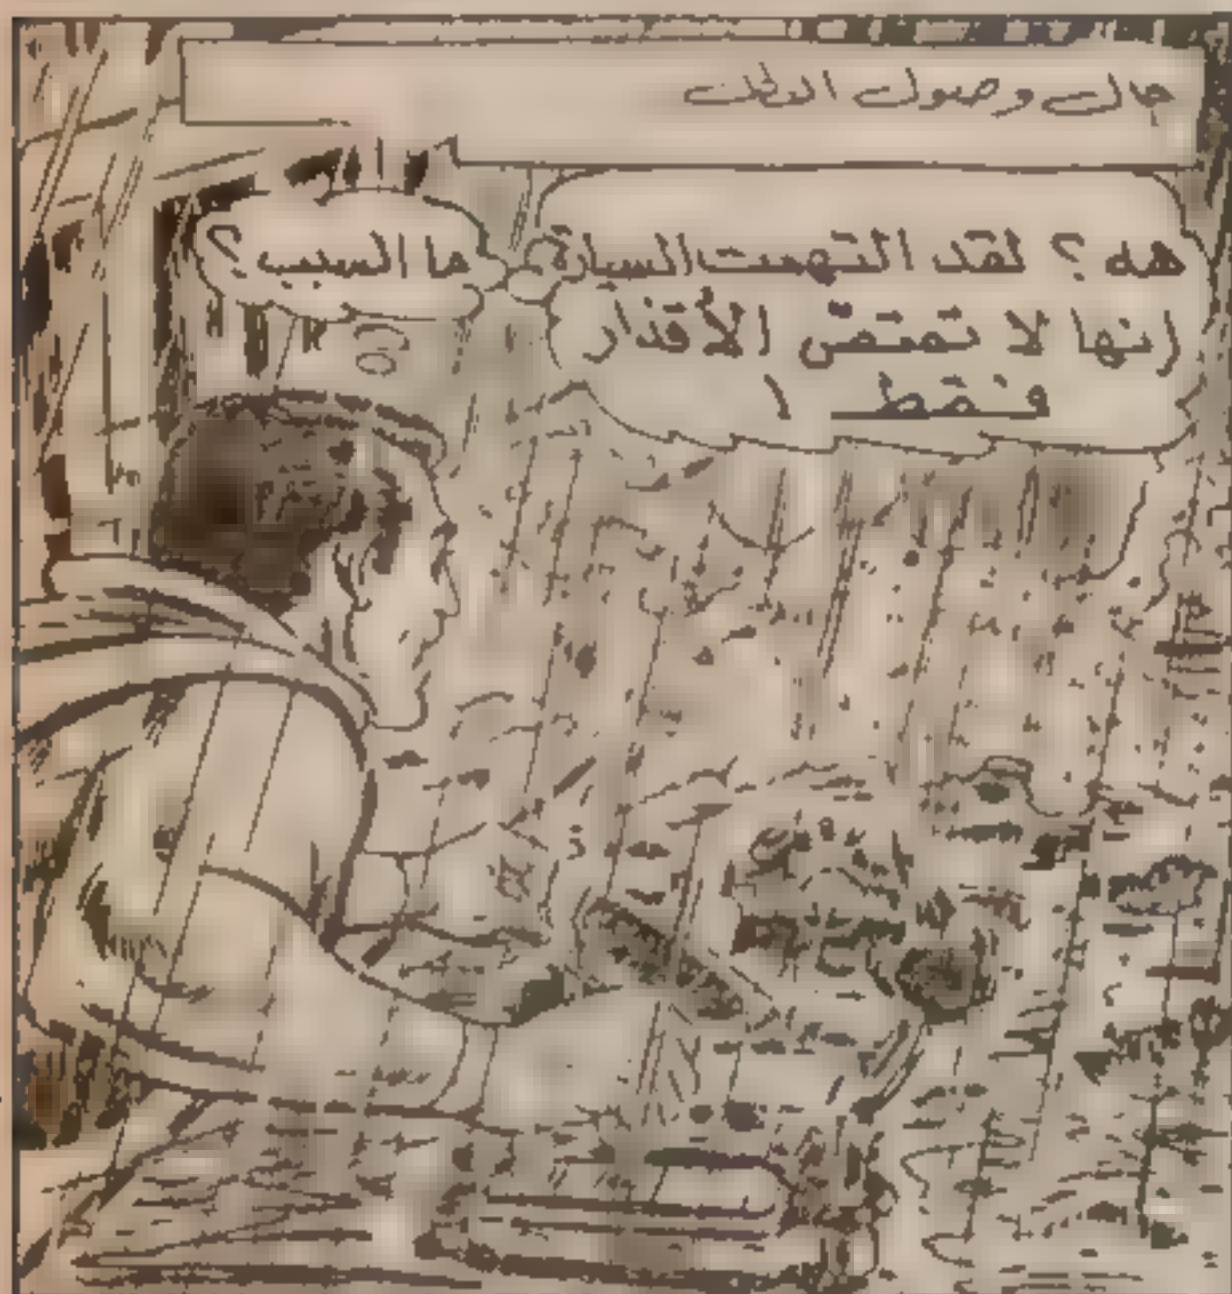 حال وصول البطل
هه؟ لقد التهمت السيارة
إنها لا تمتصّ الأقذار
فقط !
ما السبب؟